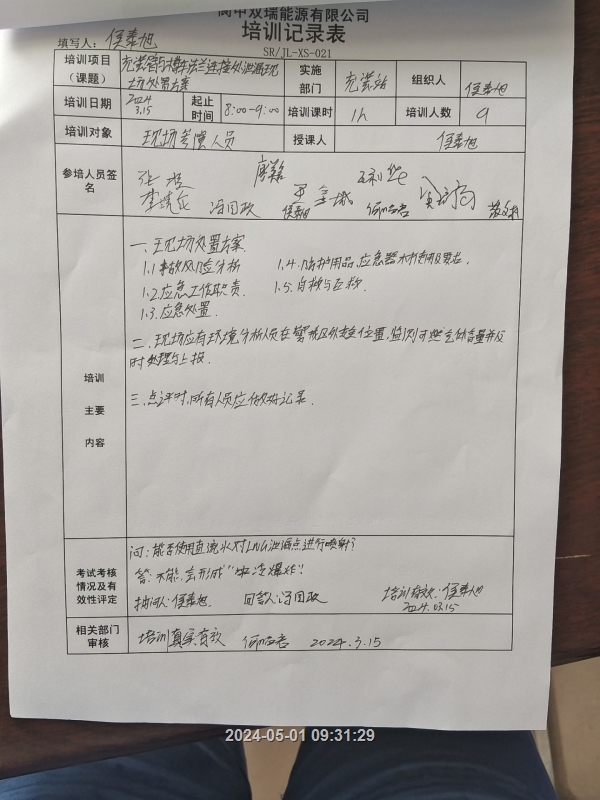 阆中双瑞能源有限公司
培训记录表
填写人：侯春旭
SR/JL-XS-021
培训项目（课题） 充装管与槽车法兰连接处泄漏现场处置方案 实施部门 充装站 组织人 侯春旭
培训日期 2024 3.15 起止时间 8:00-9:00 培训课时 1h 培训人数 9
培训对象 现场参演人员 授课人 侯春旭
参培人员签名
侯春旭
培训主要内容
一、现场处置方案
1.1 事故风险分析 1.4. 防护用品、应急器材使用及要求.
1.2. 应急工作职责. 1.5. 自救与互救.
1.3. 应急处置.
二、现场应有环境分析人员在警戒区外建立位置，监测可燃气体含量并及
时处理与上报.
三、点评时，所有人员应做好记录.
考试考核情况及有效性评定
问：能否使用直流水对LNG泄漏点进行喷射？
答：不能，会形成“冷爆炸”！
抽问人：侯春旭. 回答人：冯国政 培训有效：侯春旭
2024.03.15
相关部门审核 培训真实有效 2024.3.15
2024-05-01 09:31:29